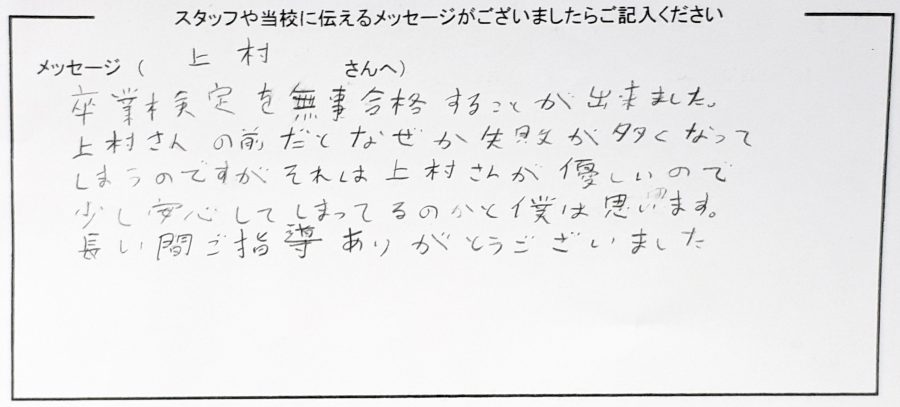 スタッフや当校に伝えるメッセージがございましたらご記入ください
メッセージ ( 上村 さんへ)
卒業検定を無事合格することが出来ました。
上村さんの前だとなぜか失敗が多くなって
しまうのですがそれは上村さんが優しいので
少し安心してしまってるのかと僕は思います。
長い間ご指導ありがとうございました